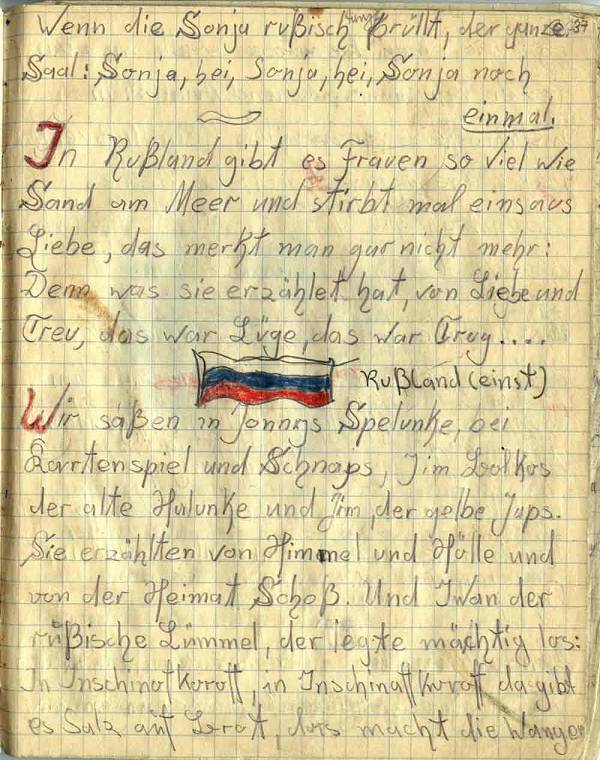 Wenn die Sonja rußisch tanzt brüllt, der ganze 37
Saal: Sonja, hei, Sonja, hei, Sonja noch
einmal.
In Rußland gibt es Frauen so viel wie
Sand am Meer und stirbt mal eins aus
Liebe, das merkt man gar nicht mehr:
Denn was sie erzählet hat, von Liebe und
Treu, das war Lüge, das war Trug....
Rußland (einst)
Wir saßen in Jonnys Spelunke, bei
Karrtenspiel und Schnaps, Jim
der alte Halunke und Jim, der gelbe Japs.
Sie erzählten von Himmel und Hölle und
von der Heimat Schoß. Und Iwan der
rußische Lümmel, der legte mächtig los:
In Inschinatkoroff, in Inschinatkoroff, da gibt
es Salz auf Brot, das macht die Wangen